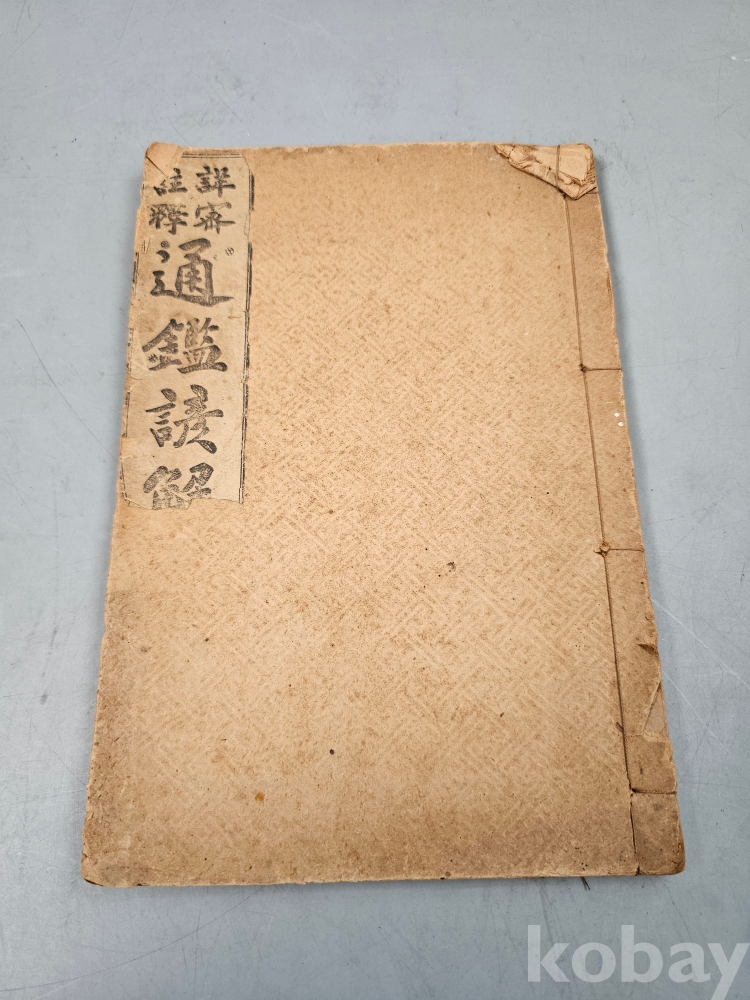 詳密
註釋
通鑑諺解
kobay